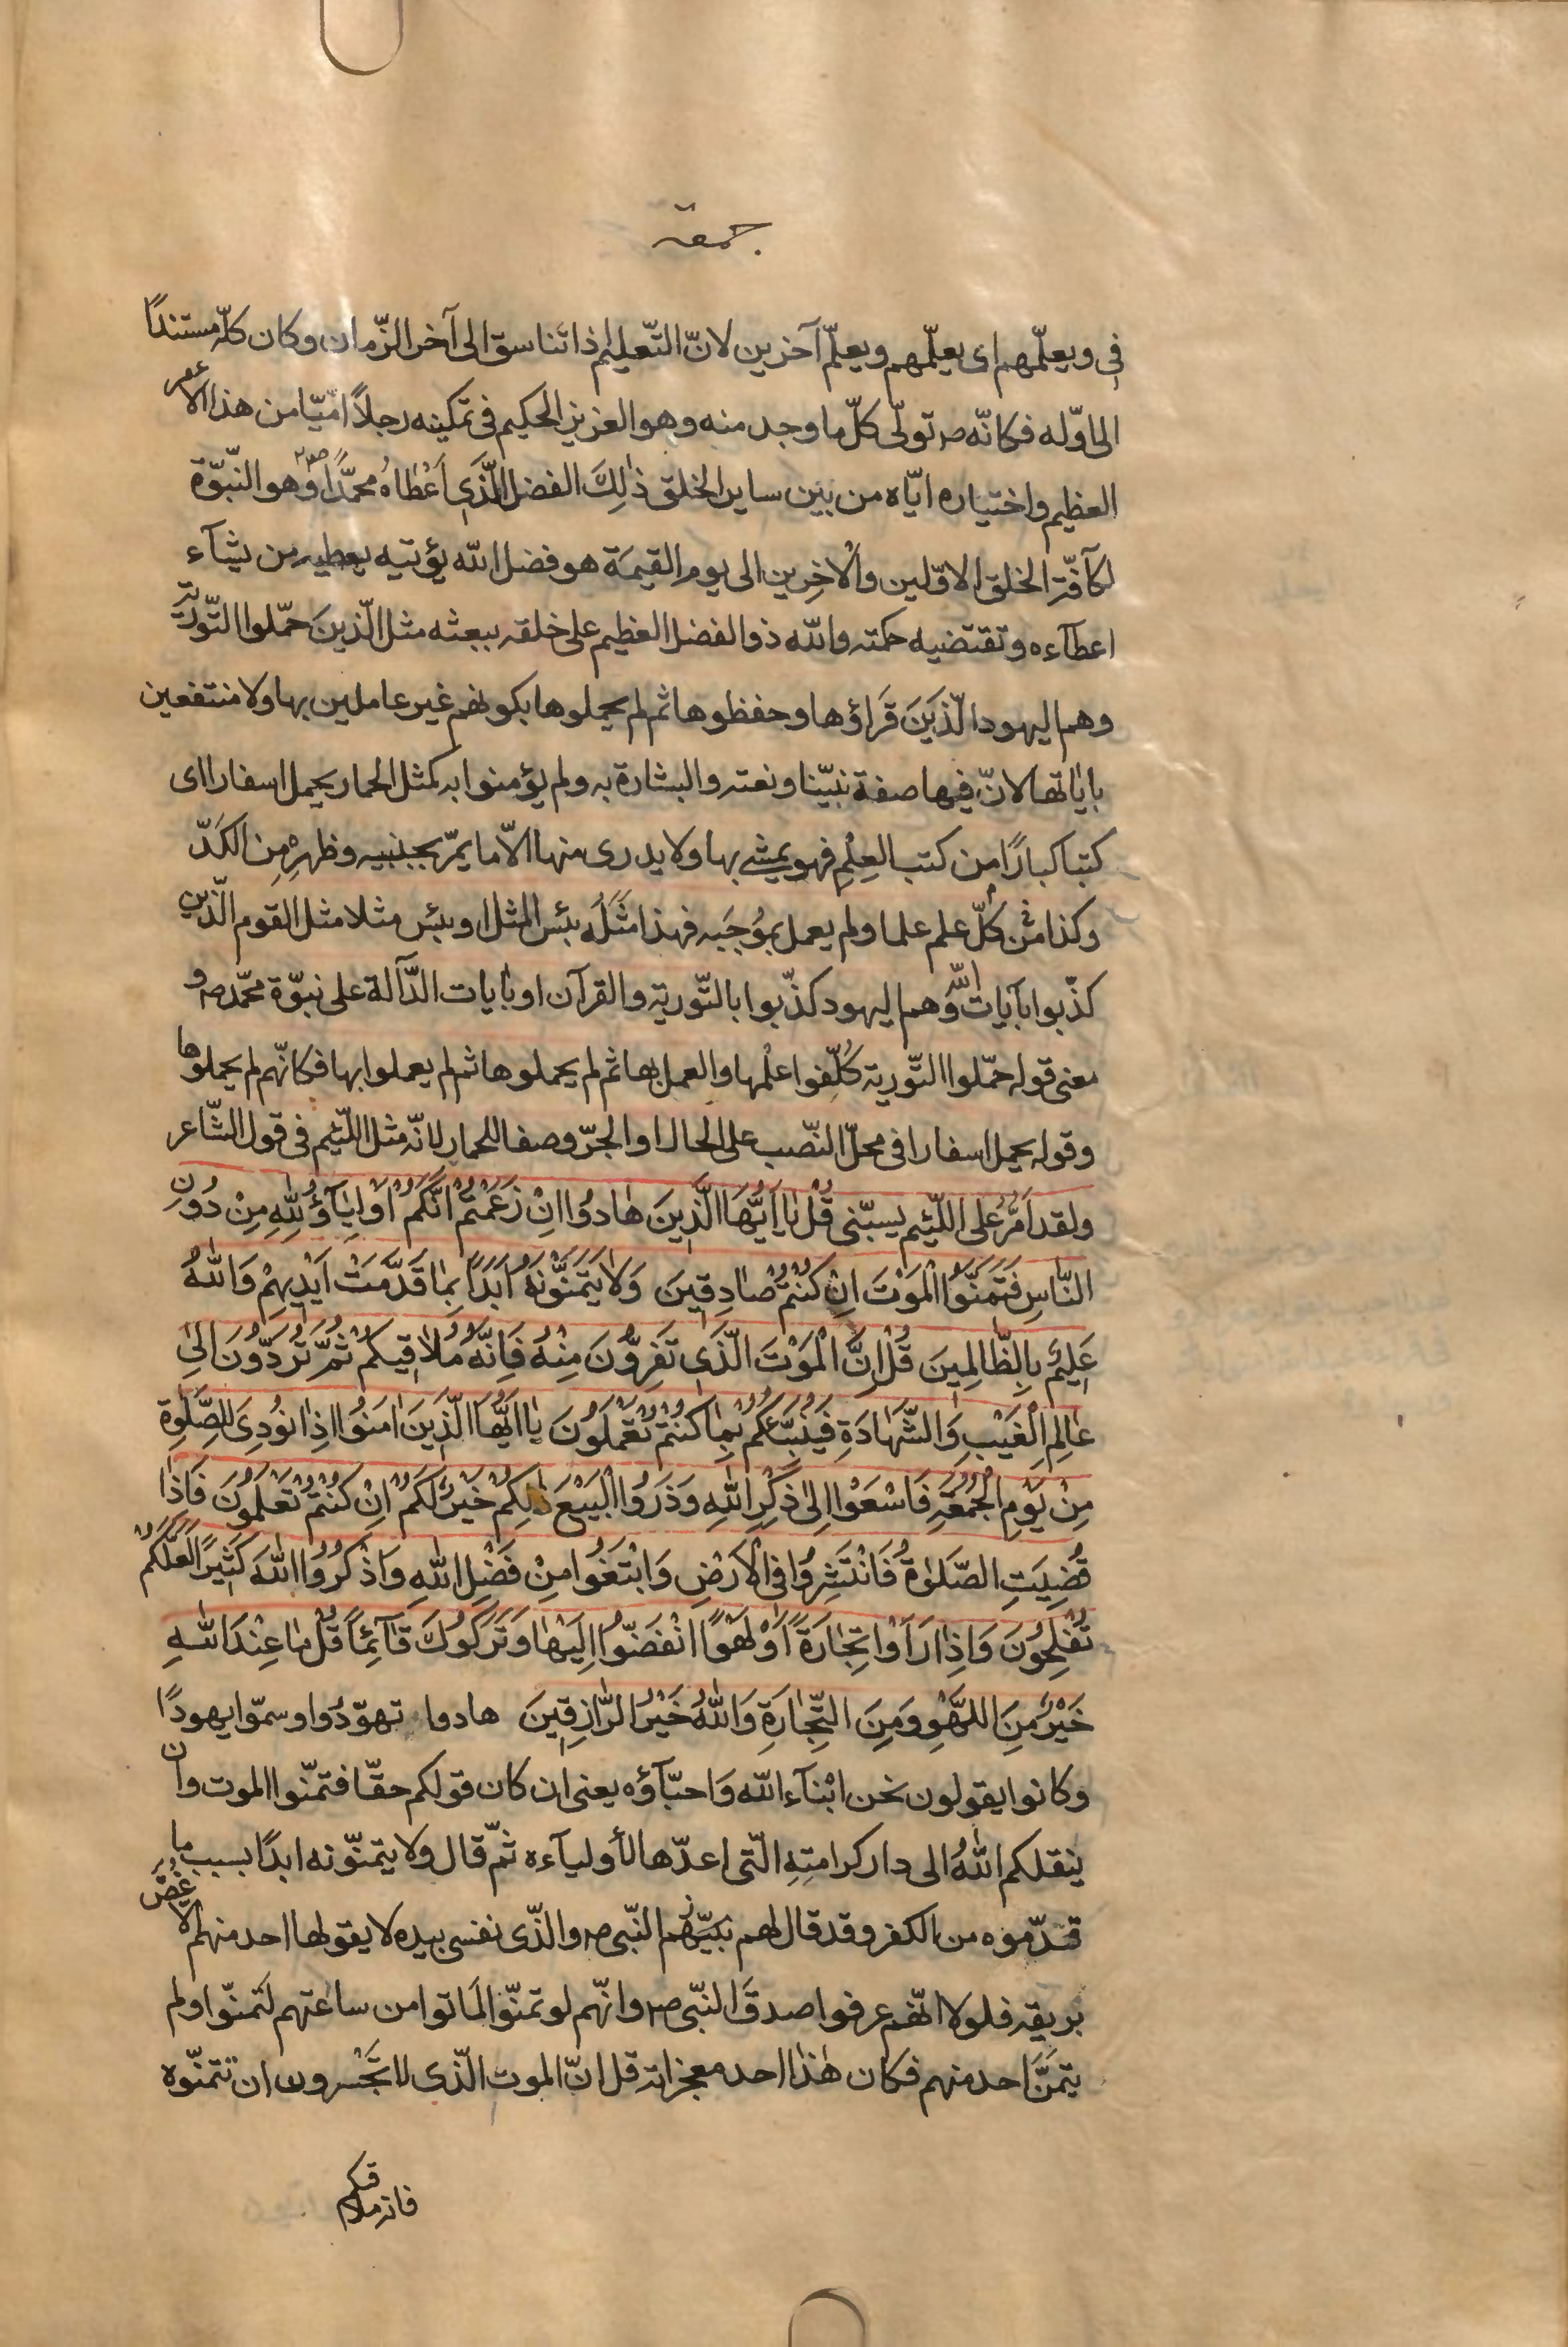 جمعة
في ويعلّمهم اى يعلّمهم ويعلّم آخرين لانّ التّعليم اذا تناسق الى آخر الزّمان وكان كلّه مستندًا
الى اوّله فكانّه ص تولّى كلّ ما وجد منه وهو العزيز الحكيم في تمكينه رجلاً امّيّا من هذا الأمر
العظيم واختياره ايّاه من بين ساير الخلق ذٰلِكَ الفضل الَّذي اَعْطاهُ محمّدًا ص وهو النّبوّة
لكآفّة الخلق الاوّلين والْاخِرين الى يوم القيمَة هو فضل الله يؤتيه يعطيه من يشآء
اعطآءه وتقتضيه حكمته والله ذو الفضل العظيم على خلقه ببعثه مثل الّذينَ حمّلوا التّورية
وهم اليهود الّذينَ قَراؤها وحفظوها ثم لم يحملوها بكونهم غير عاملين بها ولا منتفعين
باياتها لانّ فيها صفة نبيّنا ونعته والبشارة به ولم يؤمنوا به كمثل الحمار يحمل اسفارا اى
كتبا كبارًا من كتب العِلْمِ فهو يمشي بها ولا يدرى منها الّا ما يمرّ بجنبيه وظهرِهْ مِن الكَدّ
وكذا مَثَل كُلّ علم علما ولم يعمل بمُوجَبه فهذا مَثَلَه بئس المثل او بئس مثلا مثل القوم الّذين
كذّبوا بآيات اللّه وهم اليهود كذّبوا بالتّورية والقرآن او بايات الدّآلة على نبوّة محمّد ص و
معنى قوله حمّلوا التّورية كُلّفوا علْمها والعمل بها ثم لم يحملوها ثم لم يعملوا بها فكانّهم لم يحملوها
وقوله يحمل اسفارا في محلّ النّصب على الحال او الجرّ وصفا للحمار لانّه مثل اللّئيم في قول الشّاعر
ولقد اَمُرُّ على اللّئيم يسبّنى قُلْ يا اَيُّهَا الَّذِينَ هادُوا اِنْ زَعَمْتُمْ اَنَّكُمْ اَوْلِيآؤُ لِلّٰهِ مِنْ دُونِ
النّاسِ فَتَمَنَّوُا الْمَوْتَ اِنْ كُنْتُمْ صٰادِقينَ وَلا يَتَمَنَّوْنَهُ اَبَدًا بِمٰا قَدَّمَتْ اَيْدِيهِمْ وَاللّٰهُ
عَليمٌ بِالظّالِمينَ قُلْ اِنَّ الْمَوْتَ الّذى تَفِرُّونَ مِنْهُ فَاِنَّهُ مُلاقيكُمْ ثُمَّ تُرَدُّونَ اِلىٰ
عٰالِمِ الْغَيْبِ وَالشَّهٰادَةِ فَيُنَبِّئُكُمْ بِمٰا كُنْتُمْ تَعْمَلُونَ يٰا اَيُّهَا الَّذينَ اٰمَنُوا اِذٰا نُودِىَ لِلصَّلٰوةِ
مِنْ يَوْمِ الْجُمُعَةِ فَاسْعَوْا اِلىٰ ذِكْرِ اللّٰهِ وَذَرُوا الْبَيْعَ ذٰلِكُمْ خَيْرٌ لَكُمْ اِنْ كُنْتُمْ تَعْلَمُونَ فَاِذٰا
قُضِيَتِ الصَّلٰوةُ فَانْتَشِرُوا فِى الْاَرْضِ وَابْتَغُوا مِنْ فَضْلِ اللّٰهِ وَاذْكُرُوا اللّٰهَ كَثِيرًا لَعَلَّكُمْ
تُفْلِحُونَ وَاِذٰا رَاَوْا تِجٰارَةً اَوْ لَهْوًا انْفَضّوُا اِلَيْهٰا وَتَرَكُوكَ قٰآئِمًا قُلْ مٰا عِنْدَ اللّٰهِ
خَيْرٌ مِنَ اللَّهْوِ وَمِنَ التِّجٰارَةِ وَاللّٰهُ خَيْرُ الرّٰازِقينَ هادوا تهوّدُوا وسمّوا يهودًا
وكانوا يقولون نحن ابْنآء الله وَاحبّآؤه يعنى ان كان قولكم حقّا فتمنّوا الموت وان
ينقلكم اللهُ الى دار كرامتِهِ الّتى اعدّها لأوليآءه ثمّ قال ولا يتمنّونه ابدًا بسبب ما
قدّموه من الكفر وقد قال لهم نبيّهم النّبى ص والذّى نفسى بيده لا يقولها احد منهم الّا غُصَّ
بريقه فلولا انّهم عرفوا صدقَ النبّى ص وانّهم لو تمنّوا لَماتوا من ساعتهم لَتمنّوا ولم
يتمَنَّ احد منهم فكان هٰذا احد معجزاته قل انّ الموت الّذى لا تَجْسرون ان تتمنّوه
فانه ملاقيكم